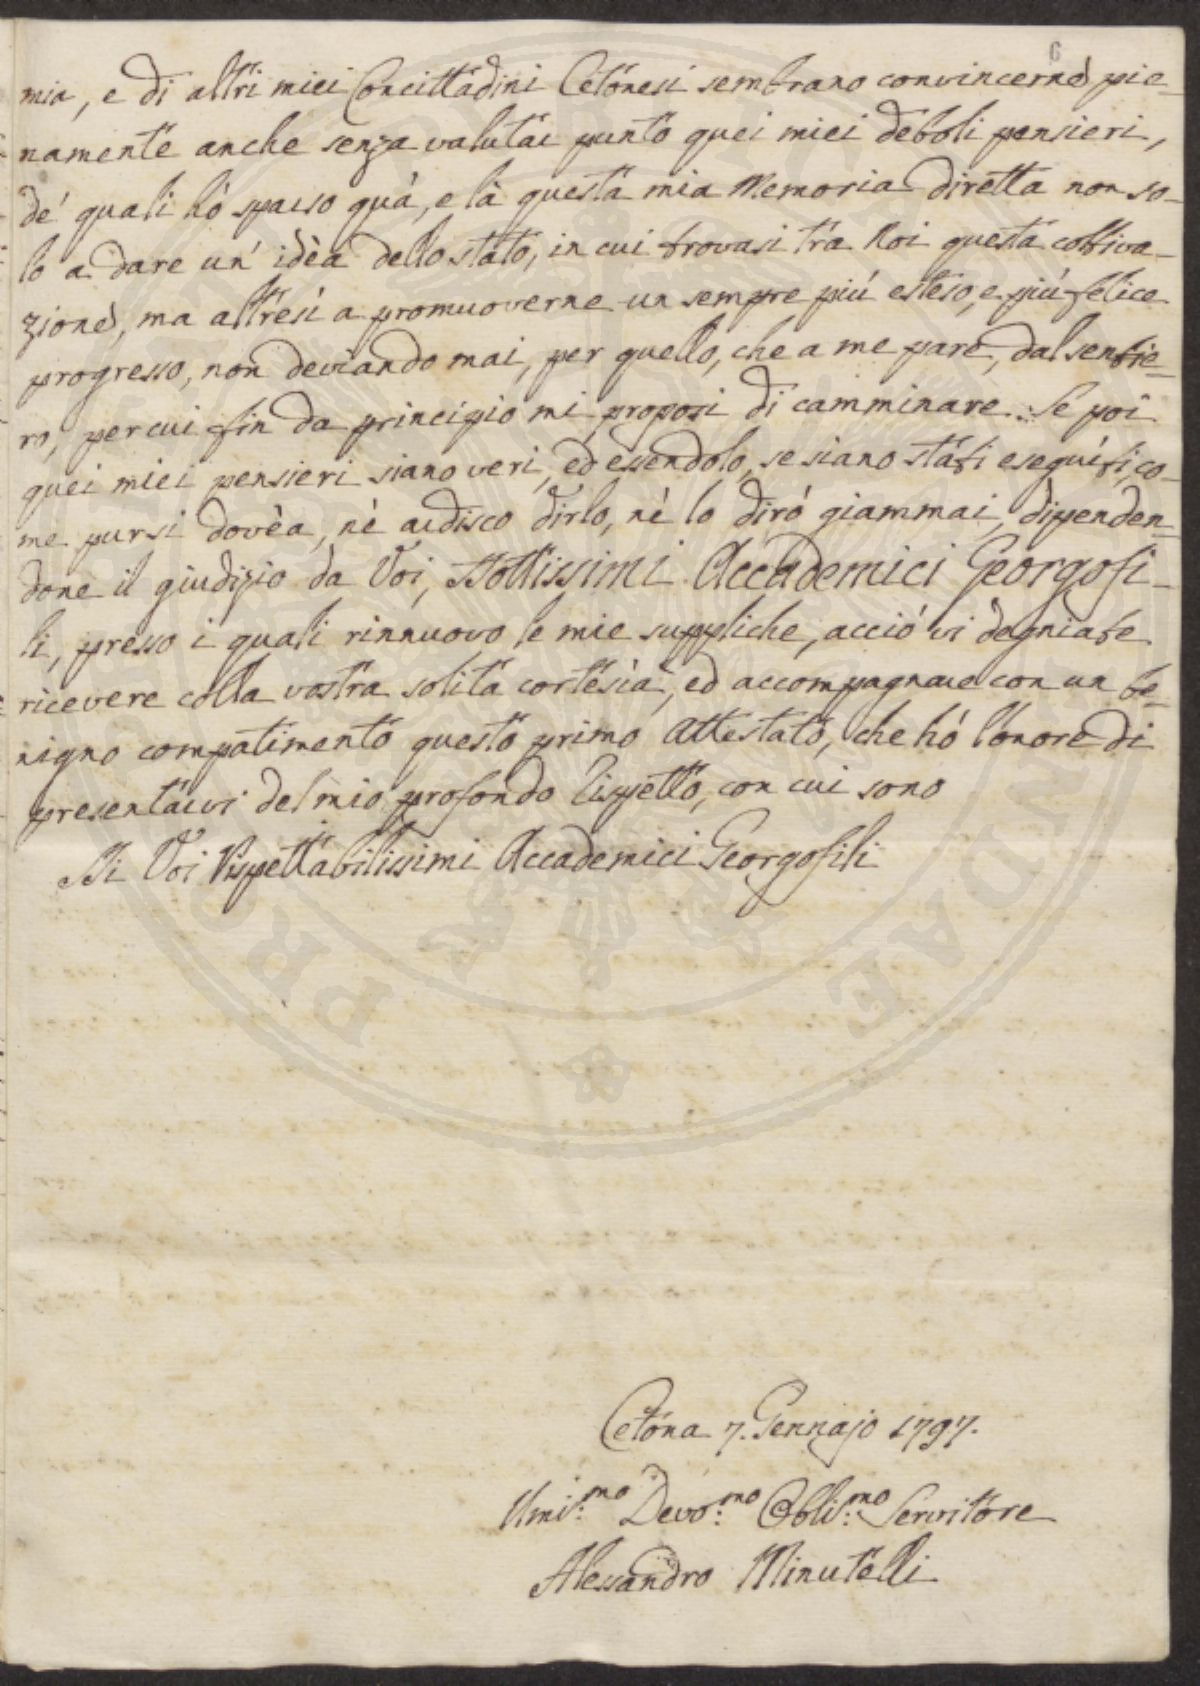 6
mia, e di altri miei Concittadini Cetonesi sembrano convincerne pie-
namente anche senza valutar punto quei miei deboli pensieri,
de' quali hò sparso quà, e là questa mia Memoria diretta non so-
lo a dare un' idèa dello stato, in cui trovasi trà Noi questa coltiva-
zione, ma altresì a promuoverne un sempre più esteso, e più felice
progresso, non deviando mai, per quello, che a me pare, dal sentie-
ro, per cui fin da principio mi proposi di camminare. Se poi
quei miei pensieri siano veri, ed essendolo, se siano stati eseguiti, co-
me pur si dovèa, nè ardisco dirlo, nè lo dirò giammai, dipenden-
done il giudizio da Voi, Dottissimi Accademici Georgofi-
li, presso i quali rinnuovo le mie suppliche, acciò vi degniate
ricevere colla vostra solita cortesìa, ed accompagnare con un be-
nigno compatimento questo primo Attestato, che hò l'onore di
presentarvi del mio profondo Rispetto, con cui sono
Di Voi Rispettabilissimi Accademici Georgofili
Cetóna 7. Gennajo 1797.
Umi:mo Devo:mo Obbli:mo Servitore
Alessandro Minutelli
PROSPERITATI PUBLICAE AUGENDAE